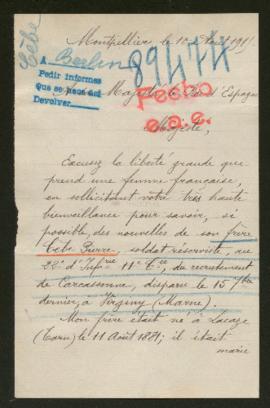 Cèbe
Montpellier le 10 Août 191
A Berlin
89474
Pedir informes
que se ruega
Devolver
Majesté le Roi d'Espagne
Fecho
e.a.e.
Majesté,
Excusez la liberté grande que
prend une femme française,
en sollicitant votre très haute
bienveillance pour savoir, si
possible, des nouvelles de son frère
Cèbe Pierre, soldat réserviste, au
22e d'Infrie 11e Cie, du recrutement
de Carcassonne, disparu le 15 7bre
dernier, à Virginy (Marne).
Mon frère était né à Lacaze
(Tarn) le 11 Août 1881; il était
marié